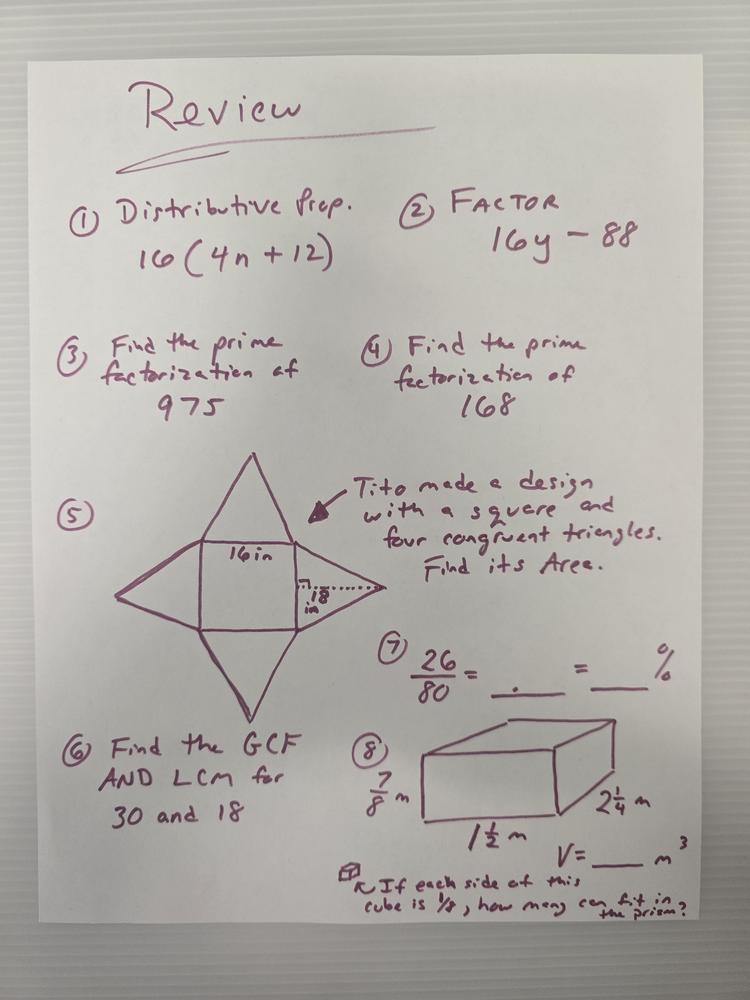 Review
① Distributive Prop.
16(4n + 12)
② FACTOR
16y - 88
③ Find the prime
factorization of
975
④ Find the prime
factorization of
168
⑤
16 in
18
in
Tito made a design
with a square and
four congruent triangles.
Find its Area.
⑥ Find the GCF
AND LCM for
30 and 18
⑦ 26/80 = __.__ = ____ %
⑧
7/8 m
1 1/2 m
2 1/4 m
V = ____ m³
If each side of this
cube is 1/8, how many can fit in
the prism?